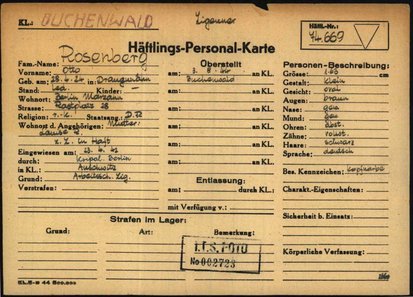 KL: BUCHENWALD
Zigeuner
Häftl.-Nr.:
74 669
Häftlings-Personal-Karte
Fam.-Name: Rosenberg
Vorname: Otto
Geb. am: 28.4.27 in Draugupönen
Stand: led. Kinder: -
Wohnort: Berlin Marzahn
Strasse: Rastplatz 28
Religion: r.-k. Staatsang.: D.R.
Wohnort d. Angehörigen: Mutter:
z. Z. in Haft
Eingewiesen am:
durch: Kripol. Berlin
in KL.: Auschwitz
Grund: Arbeitssch. Zig.
Vorstrafen:
Überstellt
am: 3. 8. 44 an KL.
Buchenwald
am: an KL.
am: an KL.
am: an KL.
am: an KL.
am: an KL.
Entlassung:
am: durch KL.:
mit Verfügung v.:
Personen-Beschreibung:
Grösse: cm
Gestalt: klein
Gesicht: oval
Augen: braun
Nase: gew
Mund: gew
Ohren:
Zähne:
Haare: schwarz
Sprache: deutsch
Bes. Kennzeichen:
Charakt.-Eigenschaften:
Sicherheit b. Einsatz:
Körperliche Verfassung:
Strafen im Lager:
Grund: Art: Bemerkung:
I.T.S. FOTO
No 002723